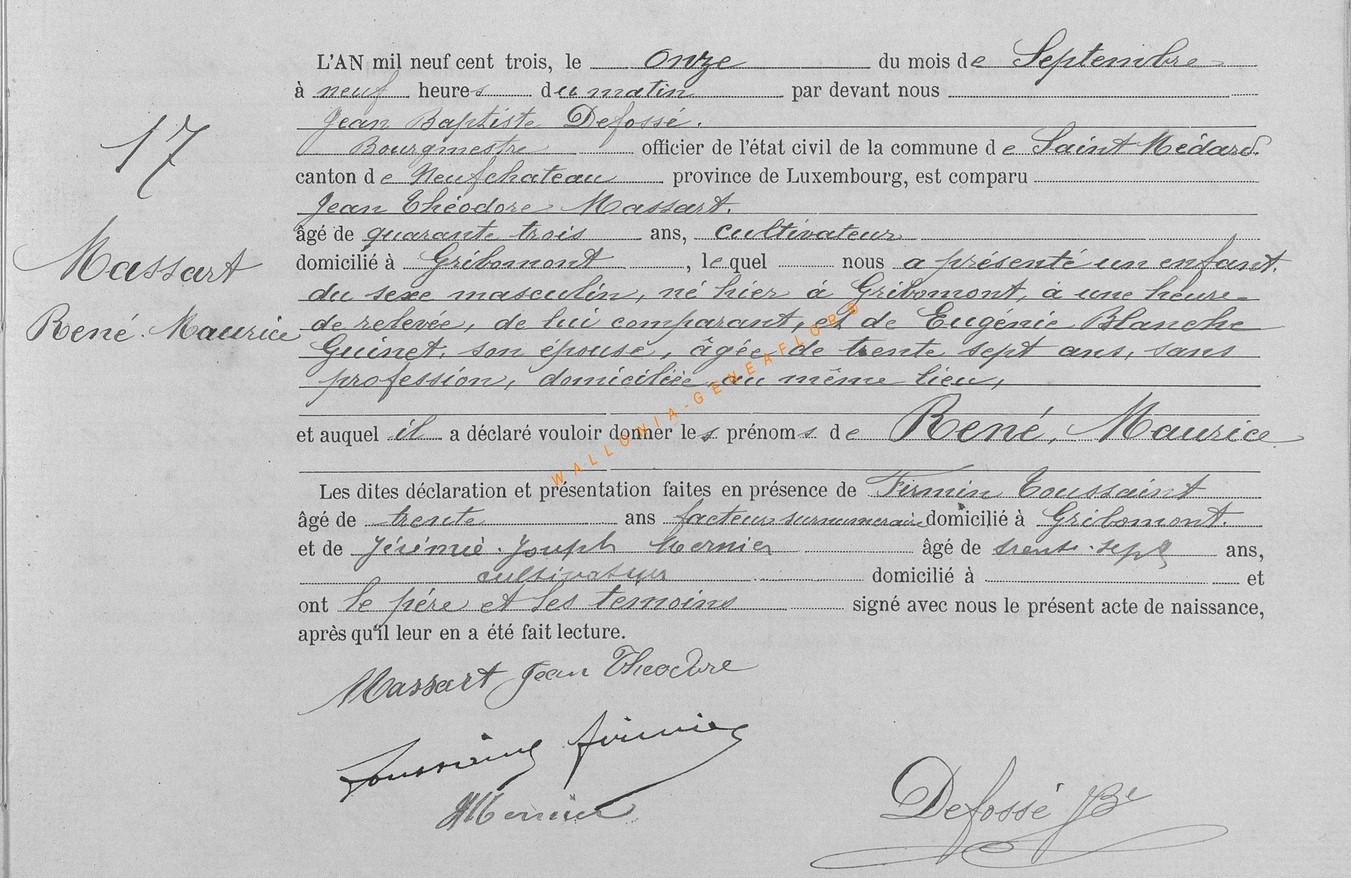 17
Massart
René Maurice
L'AN mil neuf cent trois, le onze du mois de Septembre
à neuf heures du matin par devant nous
Jean Baptiste Defossé.
Bourgmestre officier de l'état civil de la commune de Saint Médard.
canton de Neufchateau province de Luxembourg, est comparu
Jean Théodore Massart.
âgé de quarante trois ans, cultivateur
domicilié à Gribomont, lequel nous a présenté un enfant.
du sexe masculin, né hier à Gribomont, à une heure
de relevée, de lui comparant, et de Eugénie Blanche
Guinet, son épouse, âgée de trente sept ans, sans
profession, domiciliée au même lieu,
et auquel il a déclaré vouloir donner les prénoms de René, Maurice
Les dites déclaration et présentation faites en présence de Firmin Toussaint
âgé de trente ans facteur surnumeraire domicilié à Gribomont.
et de Jérémie Joseph Mernier âgé de trente-sept ans,
cultivateur domicilié à et
ont le père et les temoins signé avec nous le présent acte de naissance,
après qu'il leur en a été fait lecture.
Massart Jean Théodore
Toussaint firmin
JMernier
Defossé JBte
WALLONIA-GENEAFLORE